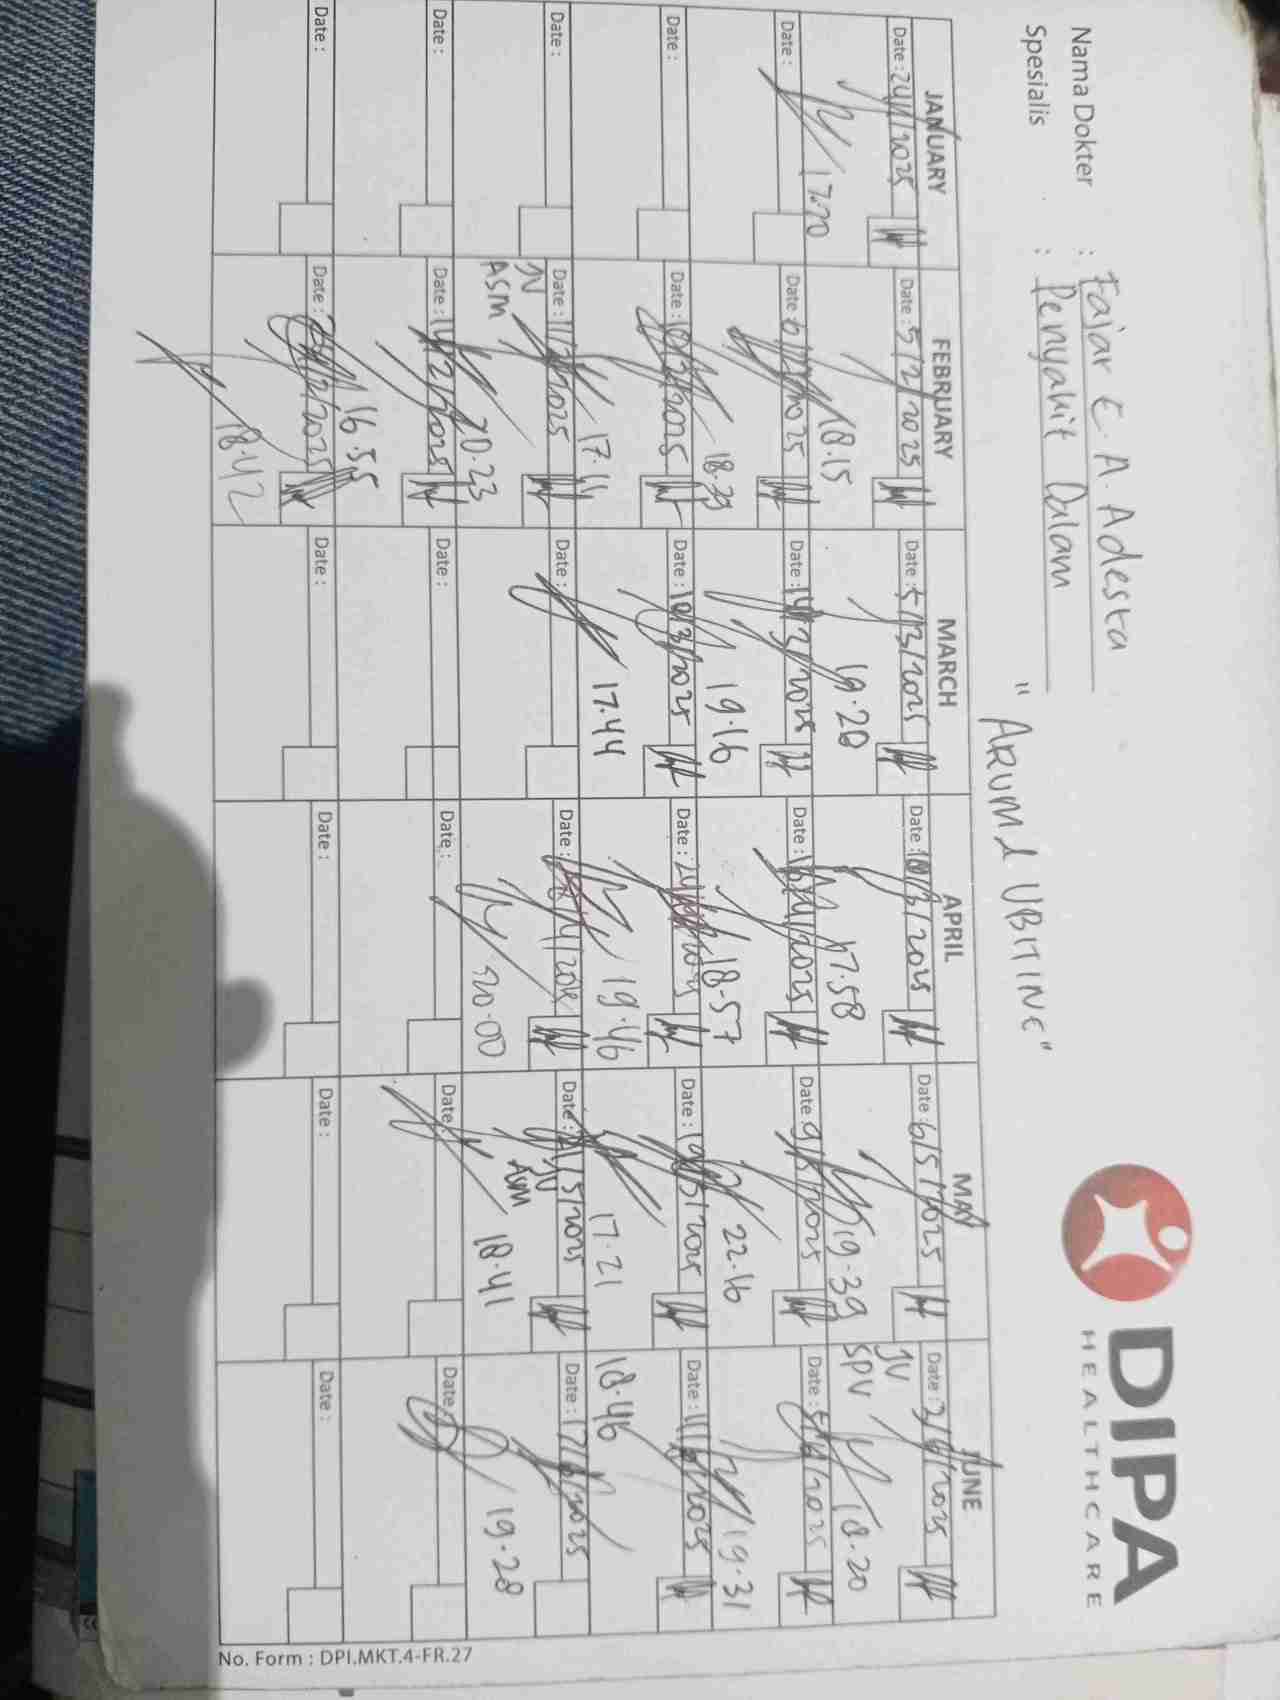 DIPA
HEALTHCARE
Nama Dokter : Fajar E. A. Adesta
Spesialis : Penyakit Dalam
"ARUM 1 UBITINE"
JANUARY FEBRUARY MARCH APRIL MAY JUNE
Date : 24/1/2025 Date : 5/2/2025 Date : 5/3/2025 Date : 10/3/2025 Date : 6/5/2025 Date : 3/6/2025
JV
SPV
17.20 18.15 19.20 17.58 19.39 18.20
Date : Date : 6/2/2025 Date : 14/3/2025 Date : Date : 9/5/2025 Date : 5/6/2025
18.39 19.16 18.57 22.16 19.31
Date : Date : Date : 18/3/2025 Date : Date : 19/5/2025 Date : 11/6/2025
17.44 19.46 17.21 18.46
Date : Date : 11/2/2025 Date : Date : Date : 21/5/2025 Date : 17/6/2025
JV
ASM
JV
ASM
20.23 20.00 18.41 19.28
Date : Date : 14/2/2025 Date : Date : Date : Date :
16.55
Date : Date : Date : Date : Date : Date :
18.42
No. Form : DPI.MKT.4-FR.27